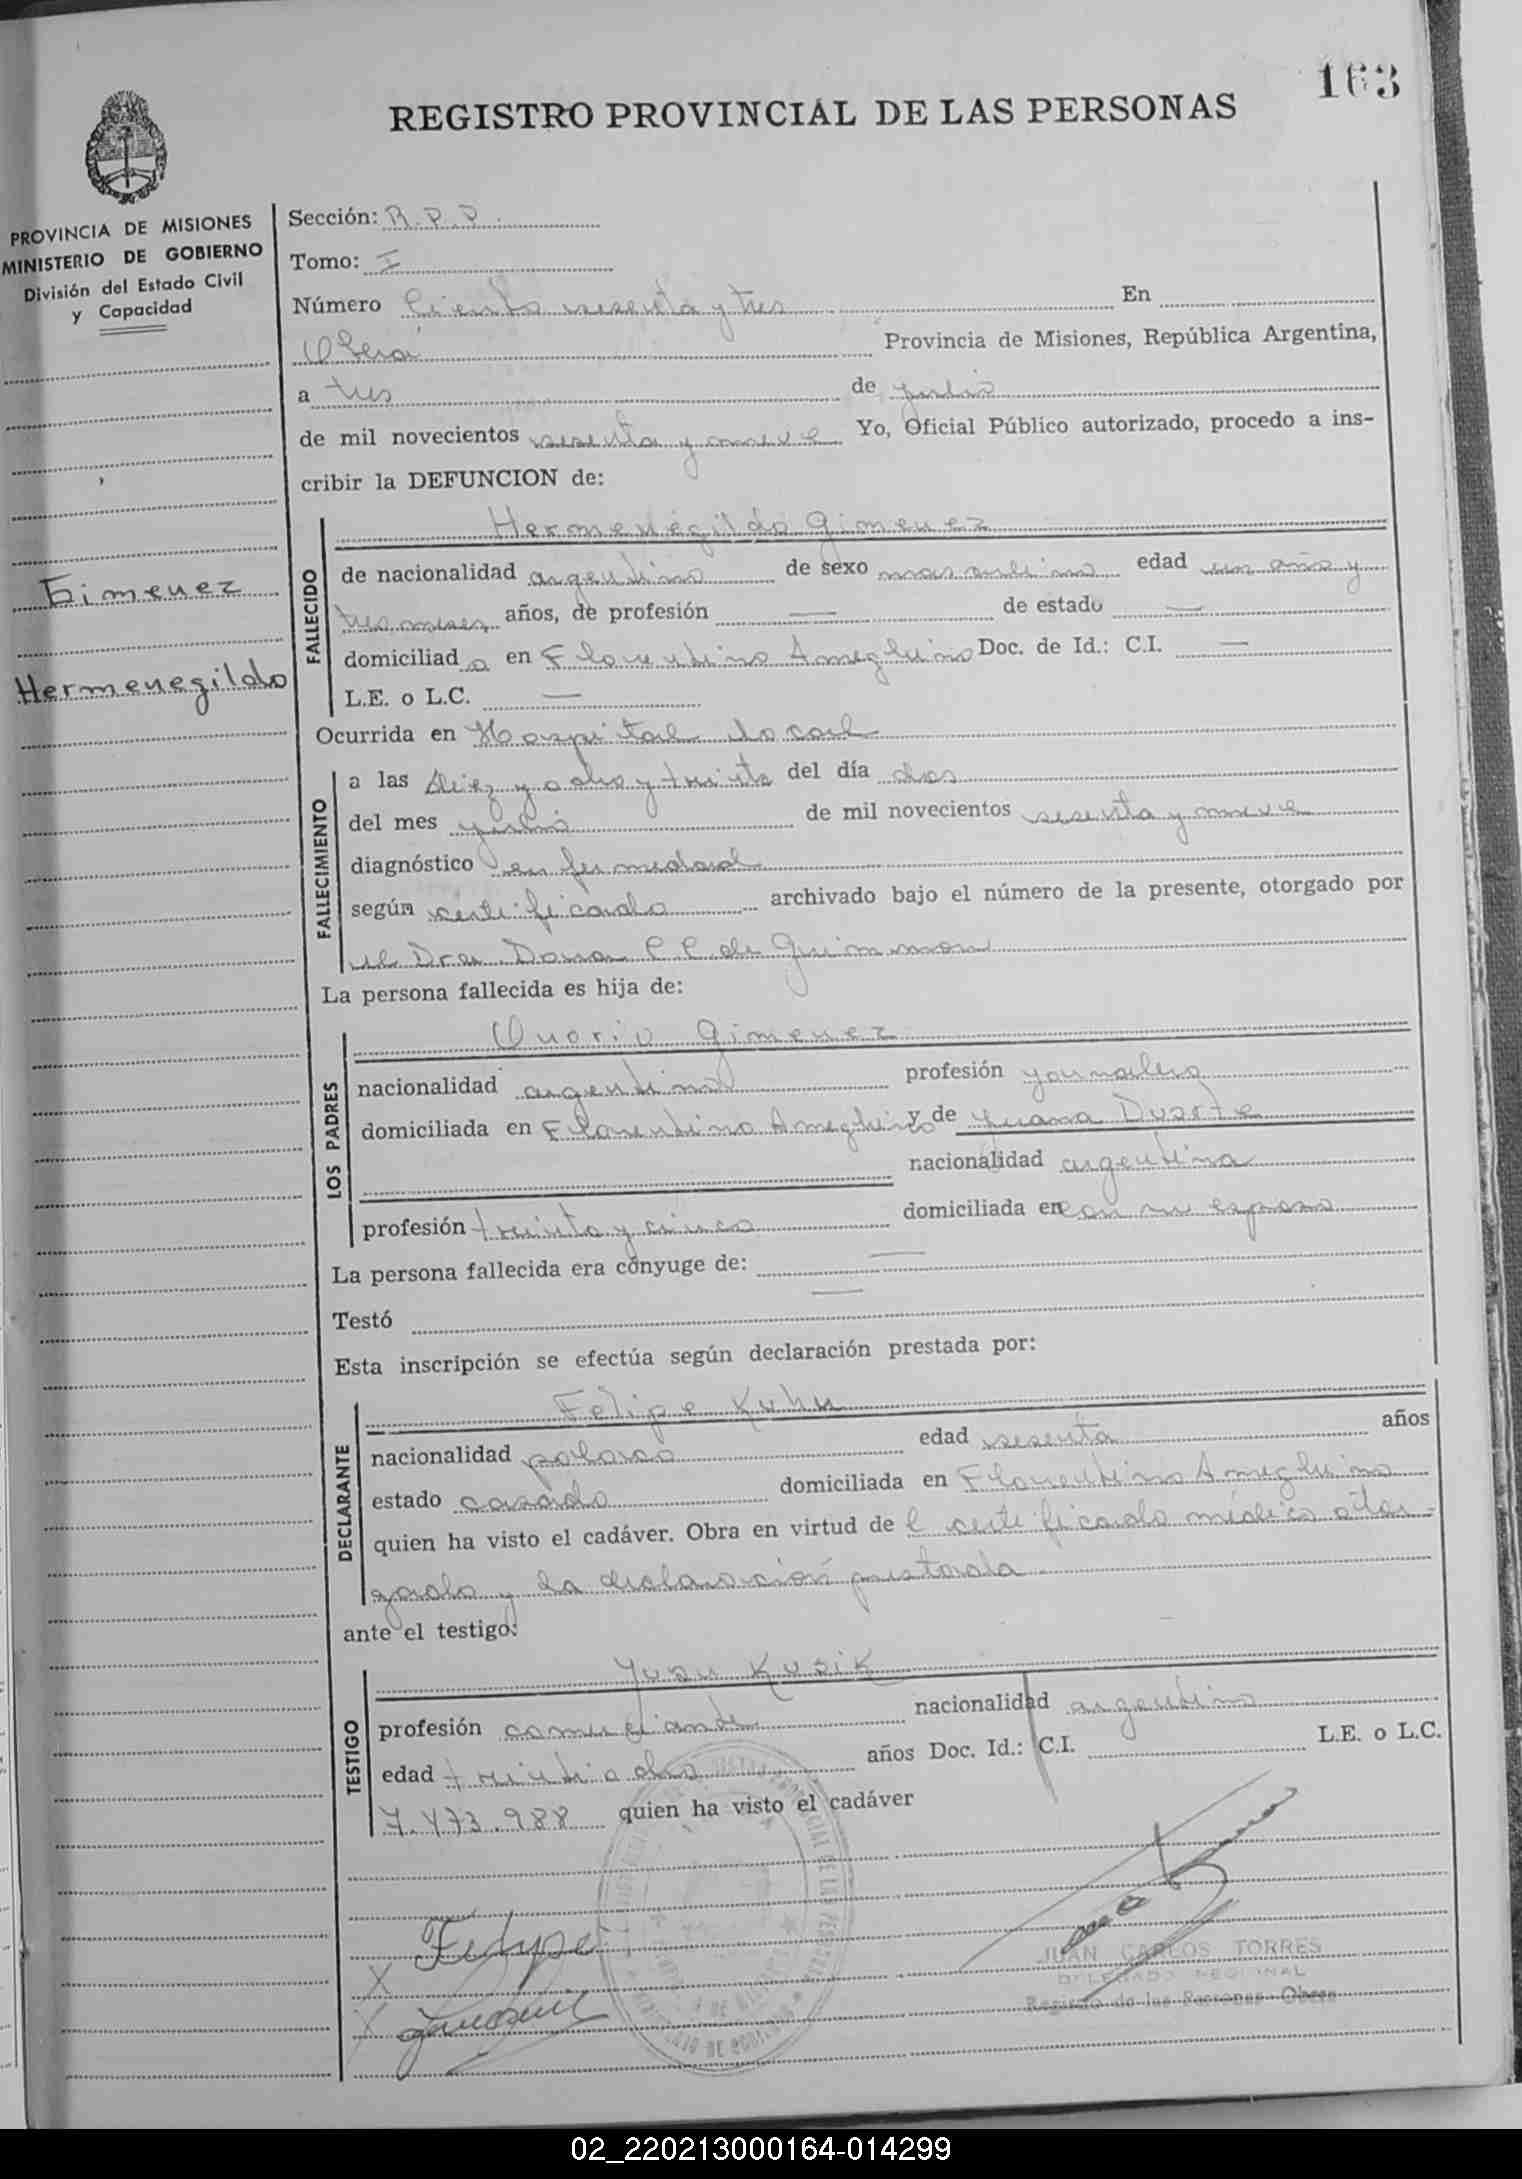 163
REGISTRO PROVINCIAL DE LAS PERSONAS
PROVINCIA DE MISIONES
MINISTERIO DE GOBIERNO
División del Estado Civil
y Capacidad
Gimenez
Hermenegildo
Sección: R.P.P.
Tomo: I
Número Ciento sesenta y tres En
Oberá Provincia de Misiones, República Argentina,
a tres de julio
de mil novecientos sesenta y nueve Yo, Oficial Público autorizado, procedo a ins-
cribir la DEFUNCION de:
FALLECIDO
Hermenegildo Gimenez
de nacionalidad argentino de sexo masculino edad un año y
tres meses años, de profesión — de estado —
domiciliad o en Florentino Ameghino Doc. de Id.: C.I. —
L.E. o L.C. —
Ocurrida en Hospital local
FALLECIMIENTO
a las diez y ocho y treinta del día dos
del mes julio de mil novecientos sesenta y nueve
diagnóstico enfermedad
según certificado archivado bajo el número de la presente, otorgado por
el Dra. Dora C.C. de
La persona fallecida es hija de:
LOS PADRES
Gimenez
nacionalidad argentino profesión jornalero
domiciliada en Florentino Ameghino y de Juana Duarte
nacionalidad argentina
profesión treinta y cinco domiciliada en con su esposo
La persona fallecida era cónyuge de: —
Testó —
Esta inscripción se efectúa según declaración prestada por:
DECLARANTE
Felipe Kuhn
nacionalidad polaco edad sesenta años
estado casado domiciliada en Florentino Ameghino
quien ha visto el cadáver. Obra en virtud de l certificado médico otor-
gado y la declaración prestada
ante el testigo:
TESTIGO
Juan Kusik
profesión comerciante nacionalidad argentino
edad treinta dos años Doc. Id.: C.I. L.E. o L.C.
7.473.988 quien ha visto el cadáver
Felipe
JUAN CARLOS TORRES
DELEGADO REGIONAL
Registro de las Personas Obera
02_220213000164-014299